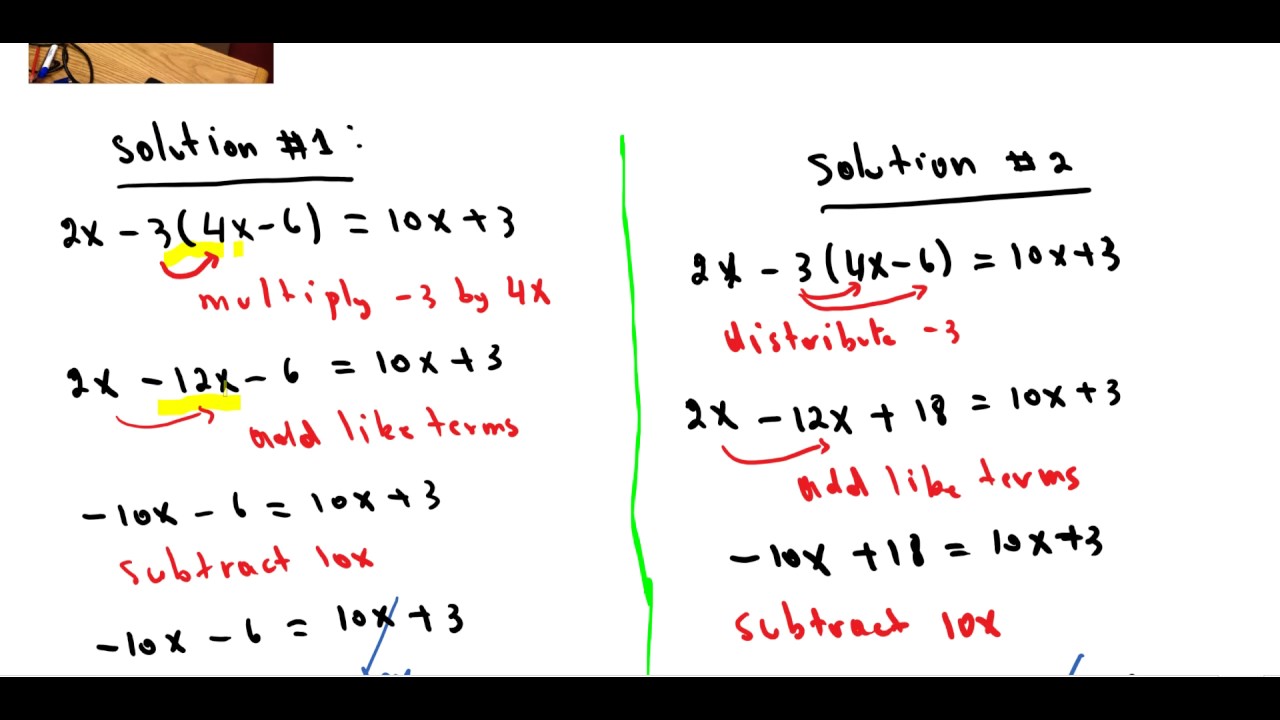 Solution #1:
2x - 3(4x - 6) = 10x + 3
multiply -3 by 4x
2x - 12x - 6 = 10x + 3
add like terms
-10x - 6 = 10x + 3
subtract 10x
-10x - 6 = 10x + 3
Solution #2
2x - 3(4x - 6) = 10x + 3
distribute -3
2x - 12x + 18 = 10x + 3
add like terms
-10x + 18 = 10x + 3
subtract 10x